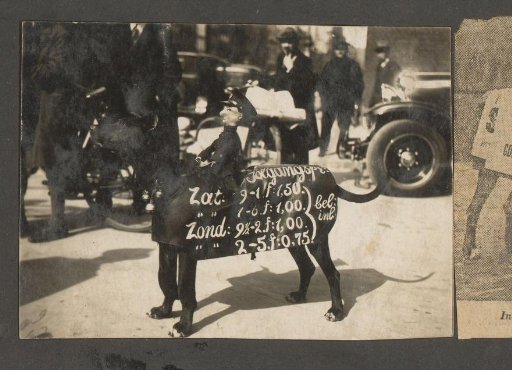 Toegangspr:
Zat: 9-1 f 1,50.
" " 1-6. f: 1,00.
Zond: 9½-2. f: 1,00.
" " 2-5. f: 0.75.
bel:
inb
S
In